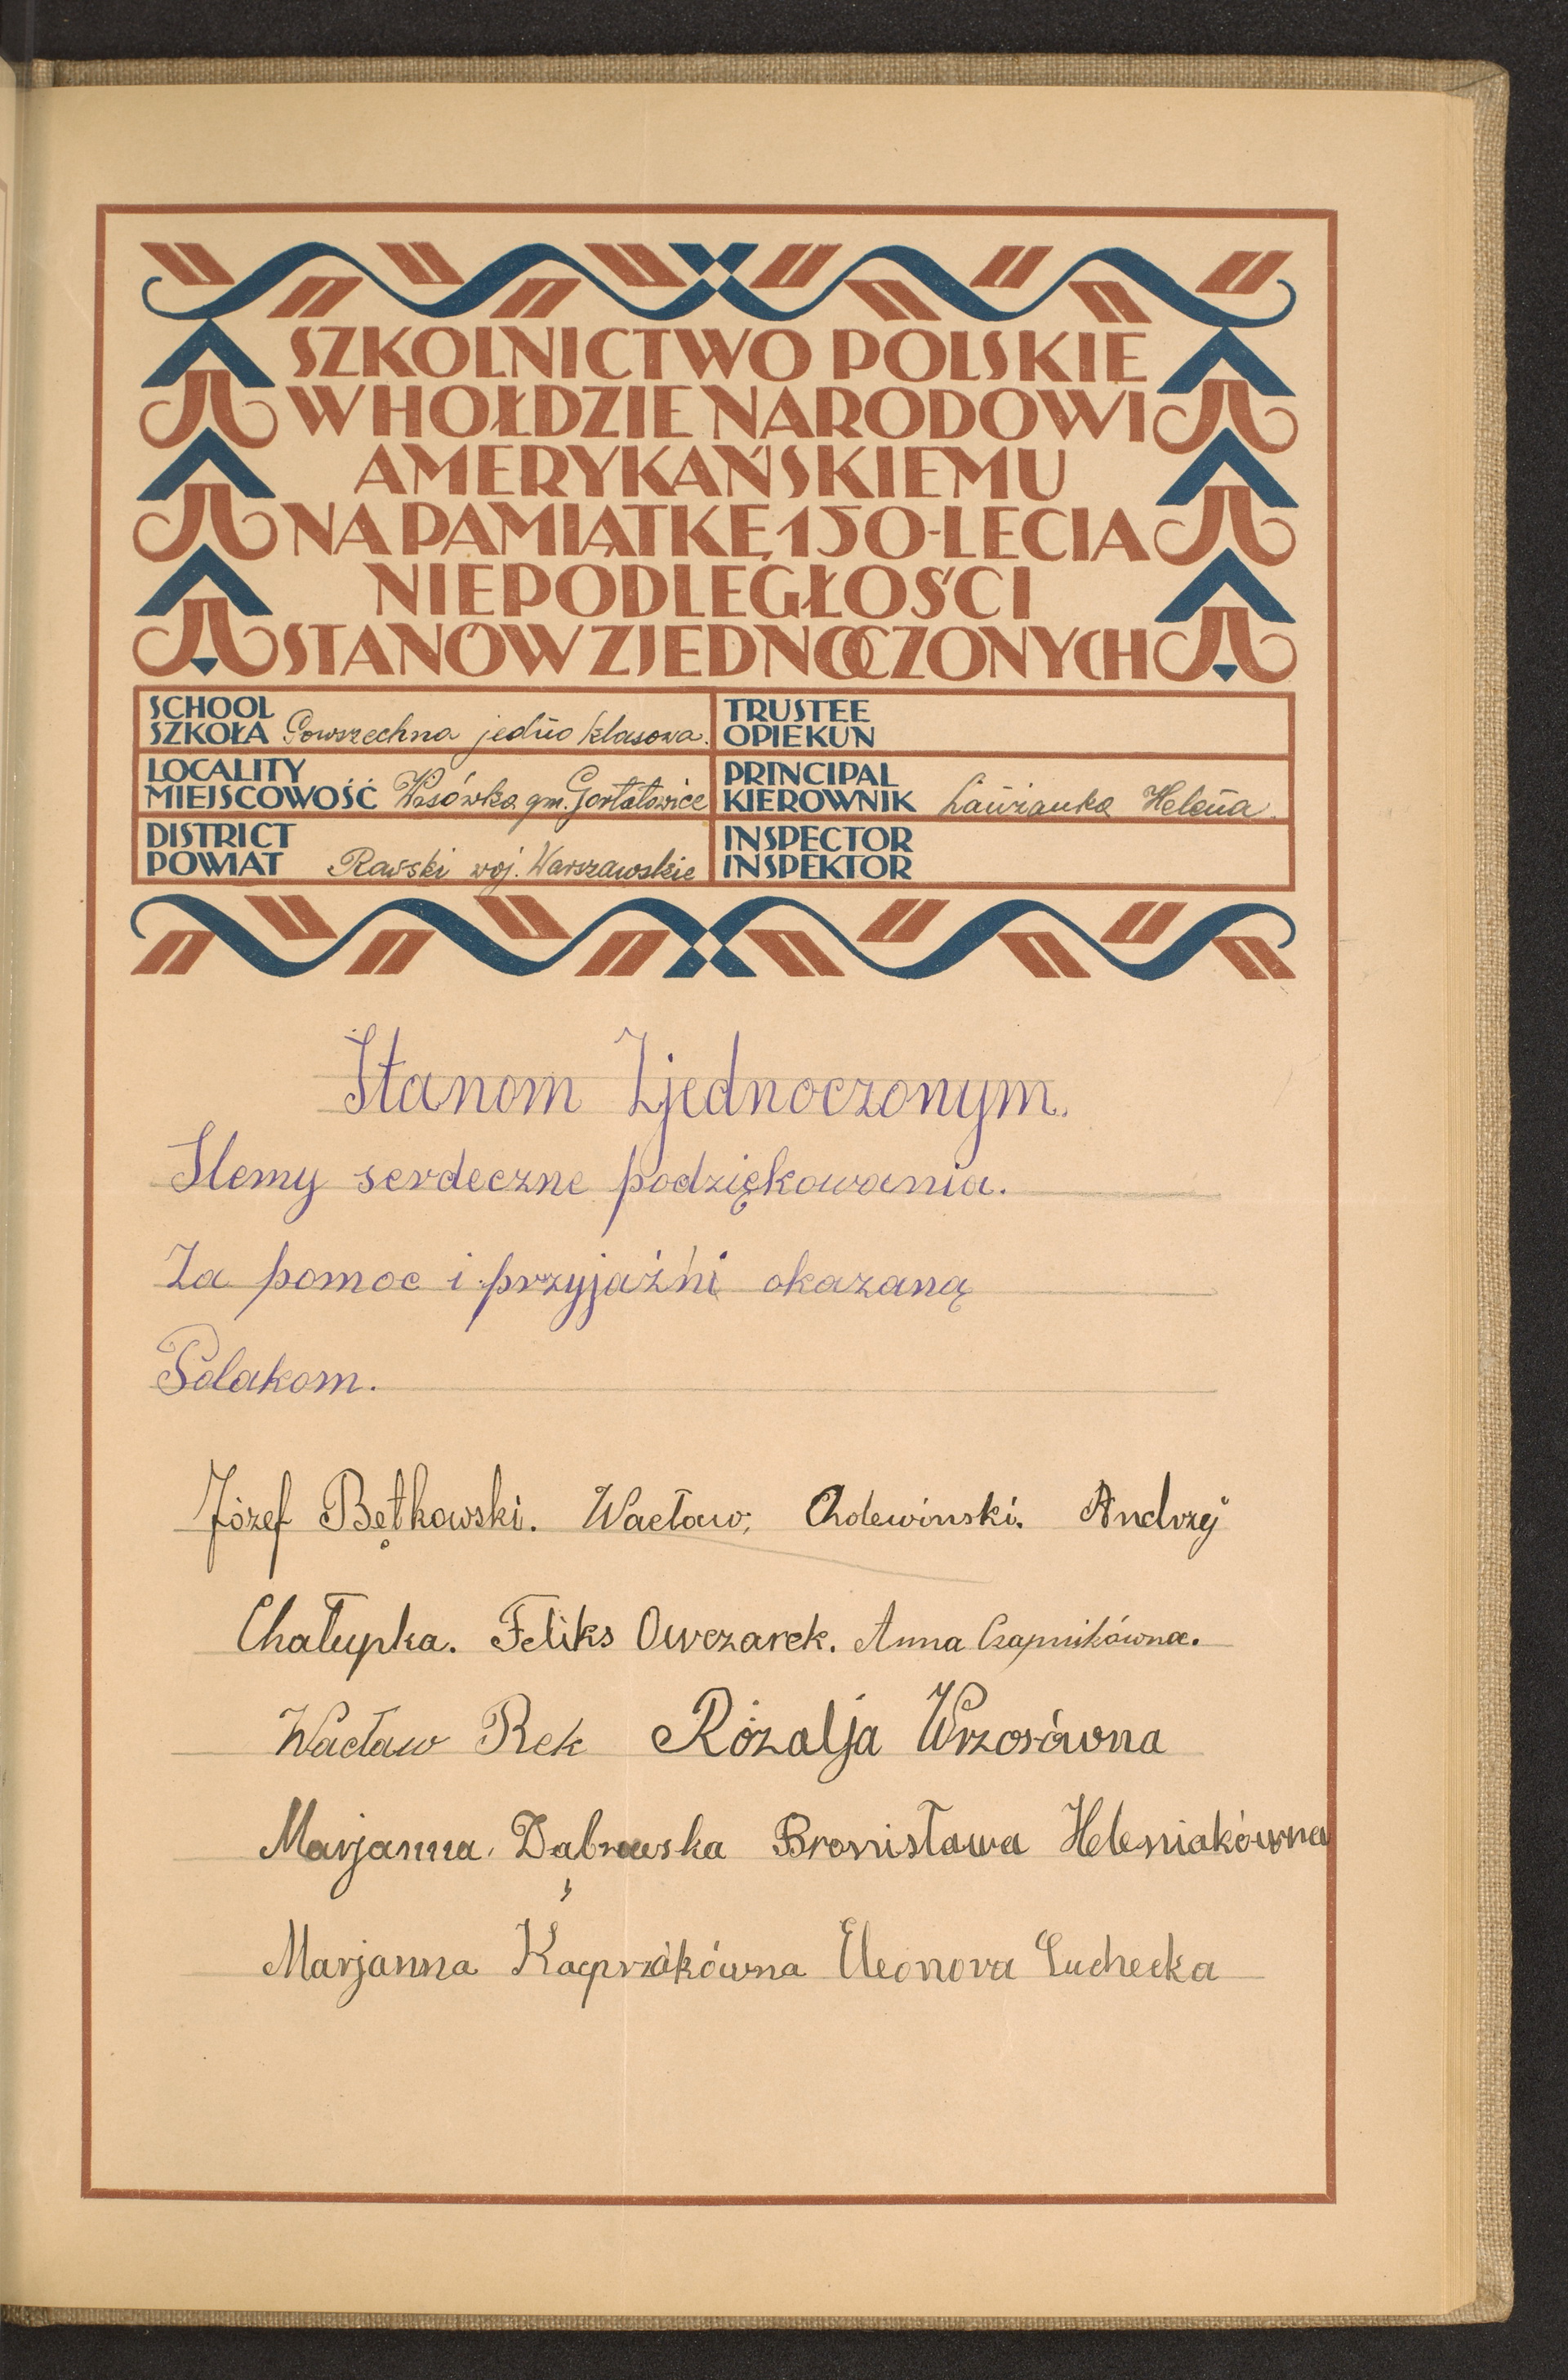 SZKOLNICTWO POLSKIE
W HOŁDZIE NARODOWI
AMERYKAŃSKIEMU
NA PAMIĄTKĘ 150-LECIA
NIEPODLEGŁOŚCI
STANÓW ZJEDNOCZONYCH
SCHOOL
SZKOŁA Powszechna jedno klasowa.
TRUSTEE
OPIEKUN
LOCALITY
MIEJSCOWOŚĆ gm. Gortatowice
PRINCIPAL
KIEROWNIK Helena
DISTRICT
POWIAT Rawski woj. Warszawskie
INSPECTOR
INSPEKTOR
Stanom Zjednoczonym.
Slemy serdeczne podziękowania.
Za pomoc i przyjaźńi okazaną
Polakom.
Józef Bętkowski. Wacław, Cholewinski. Andrzy
Chałupka. Feliks Owczarek. Anna Czapnikówna.
Wacław Rek Rózalja Wrzosówna
Marjanna. Dąbrowska Bronisława Heleniakówna
Marjanna Kacprzakówna Eleonora Suchecka